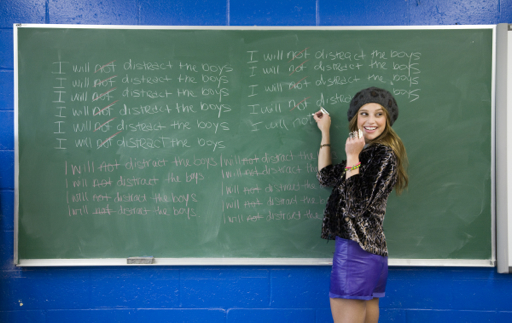 I will not distract the boys
I will not distract the boys
I will not distract the boys
I will not distract the boys
I will not distract the boys
I will not distract the boys
I will not distract the boys
I will not distract the boy
I will not distract the boys
I will not distract the boys
I will not distract the boys
I will not distract the boys
I will not distract the boys
I will not distract
I will not
I will not distract the
I will not distract the
I will not distract the
I will not distract the
I will not distract the